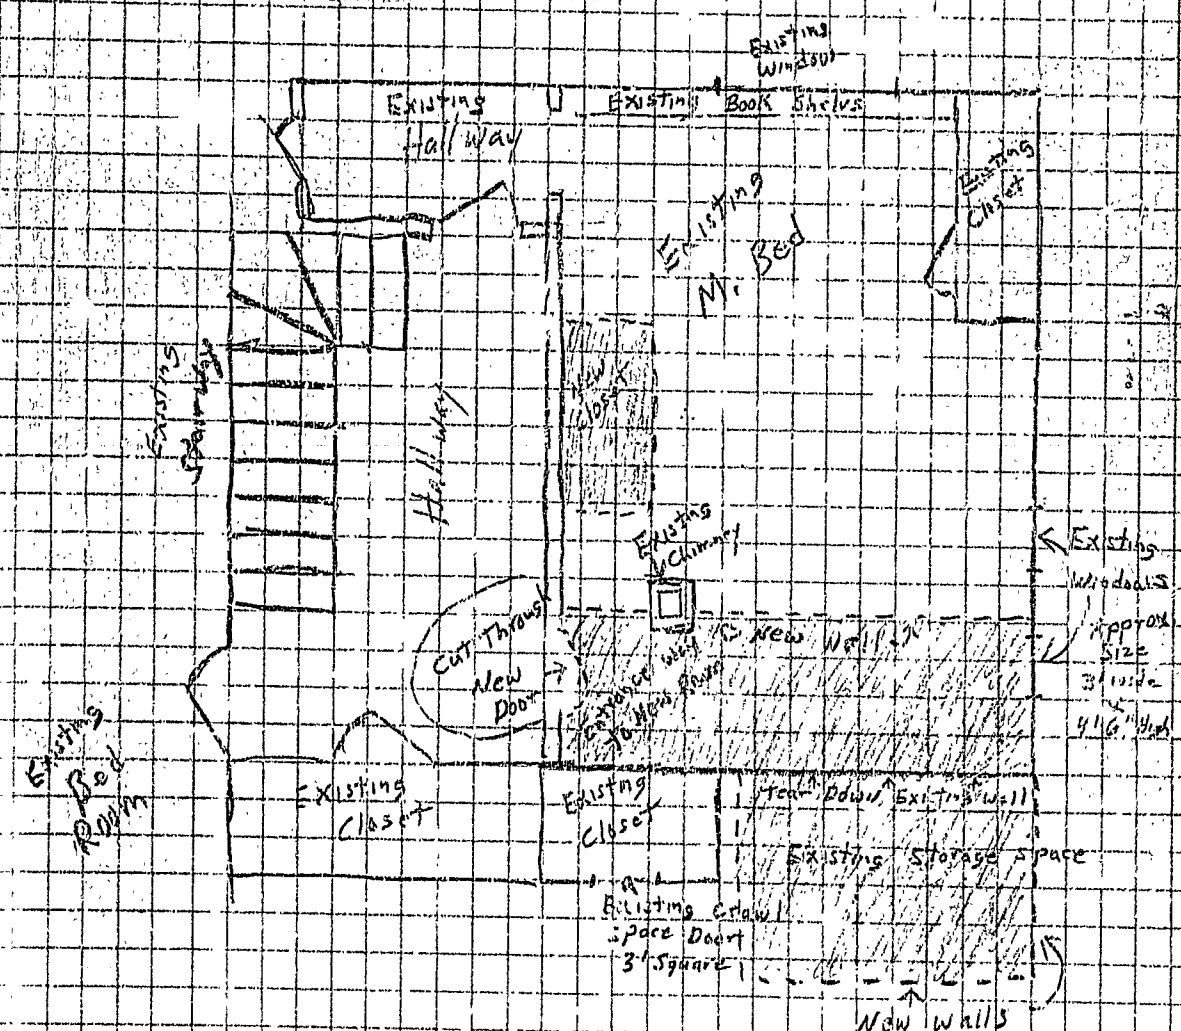 Existing
Window
Existing
Hall Way
Existing Book Shelvs
Existing
Closet
Existing
M. Bed
Existing
Stairway
New
Closet
Hall Way
Existing
Chimney
Existing
Windows
Approx
Size
3' wide
4' 6" high
Cut Through
New
Door
New Wall
Entrance way
to New Room
Existing
Bed
Room
Existing
Closet
Existng
Closet
Tear Down Existing wall
Existing Storage Space
Existing Crawl
Space Door
3' Square
New Walls